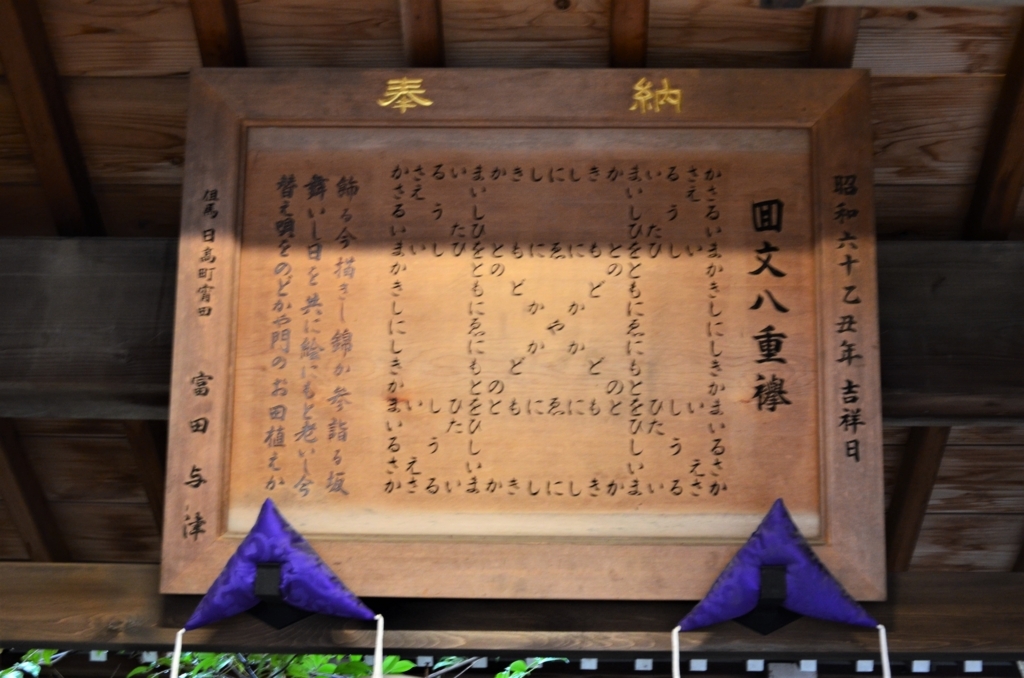 奉納
昭和六十乙丑年吉祥日
回文八重襷
かさるいまかきしにしきかまいるさか
さえ い い えさ
るうし しうる
いたび ひたい
まいしひをともにゑにもとをひしいま
か との のと か
き もど ども き
し にか かに し
に ゑ や ゑ に
し にか かに し
き もど ども き
か との のと か
まいしひをともにゑにもとをひしいま
いたび ひたい
るうし しうる
さえ い い えさ
かさるいまかきしにしきかまいるさか
飾る今描きし錦か参詣る坂
舞いし日を共に絵にもと老いし今
替え唄をのどかや門のお田植えか
但馬 日高町宵田 富田与津